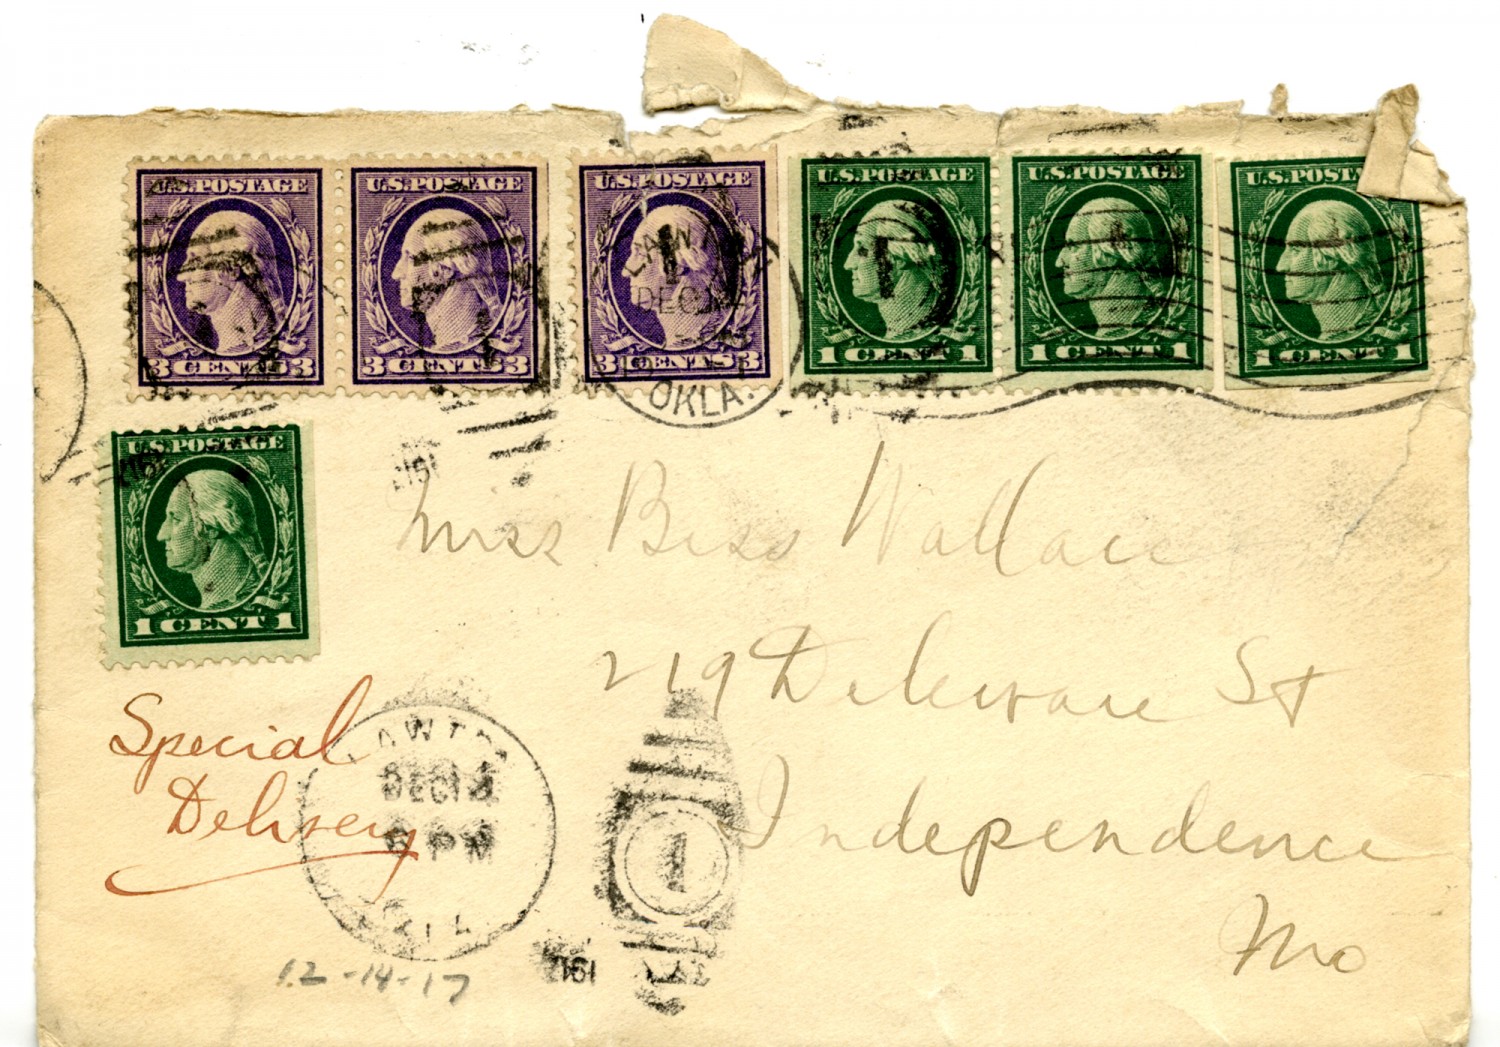 U.S. POSTAGE
3 CENTS 3
U.S. POSTAGE
3 CENTS 3
U.S. POSTAGE
3 CENTS 3
U.S. POSTAGE
1 CENT 1
U.S. POSTAGE
1 CENT 1
U.S. POSTAGE
1 CENT 1
LAWTON
DEC
OKLA.
U.S. POSTAGE
1 CENT 1
1917
1917
Miss Bess Wallace
219 Delaware St
Independence
Mo
Special
Delivery
LAWTON
DEC 14
PM
OKLA.
1
1917
12-14-17